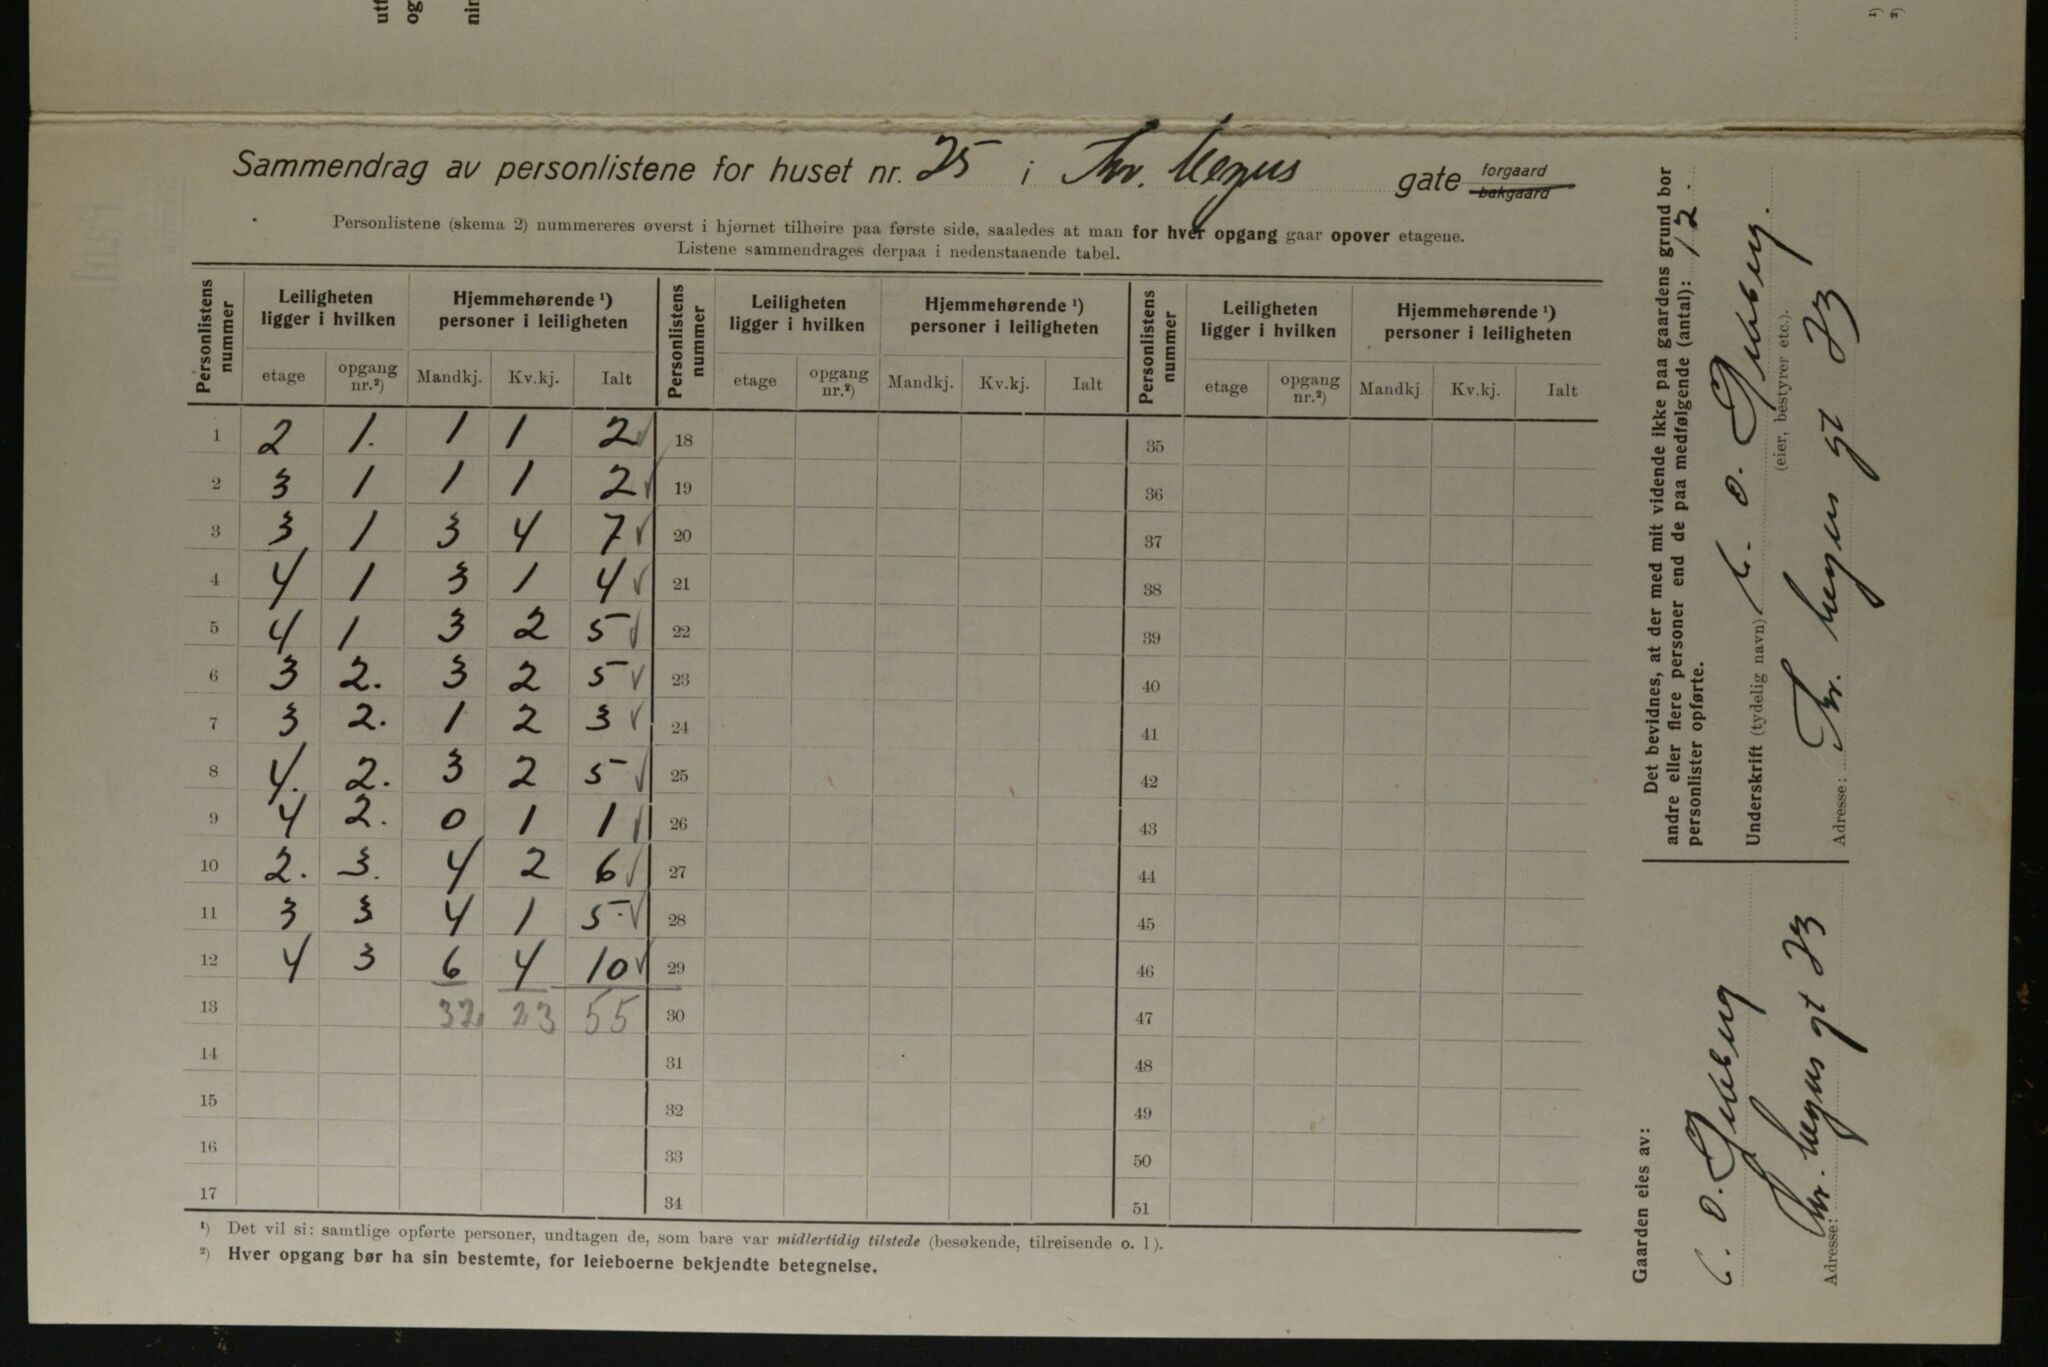 utf
og
nin
¹)
²)
Sammendrag av personlistene for huset nr. 25 i Thv. Meyers gate forgaard bakgaard
Personlistene (skema 2) nummereres øverst i hjørnet tilhøire paa første side, saaledes at man for hver opgang gaar opover etagene.
Listene sammendrages derpaa i nedenstaaende tabel.
Personlistens nummer | Leiligheten ligger i hvilken | Hjemmehørende ¹) personer i leiligheten | Personlistens nummer | Leiligheten ligger i hvilken | Hjemmehørende ¹) personer i leiligheten | Personlistens nummer | Leiligheten ligger i hvilken | Hjemmehørende ¹) personer i leiligheten
etage | opgang nr.²) | Mandkj. | Kv.kj. | Ialt | etage | opgang nr.²) | Mandkj. | Kv.kj. | Ialt | etage | opgang nr.²) | Mandkj | Kv.kj. | Ialt
1 2 1. 1 1 2 ✓ 18 35
2 3 1 1 1 2 ✓ 19 36
3 3 1 3 4 7 ✓ 20 37
4 4 1 3 1 4 ✓ 21 38
5 4 1 3 2 5 ✓ 22 39
6 3 2. 3 2 5 ✓ 23 40
7 3 2. 1 2 3 ✓ 24 41
8 4. 2. 3 2 5 ✓ 25 42
9 4 2. 0 1 1 ✓ 26 43
10 2. 3. 4 2 6 ✓ 27 44
11 3 3 4 1 5 ✓ 28 45
12 4 3 6 4 10 ✓ 29 46
13 32 23 55 30 47
14 31 48
15 32 49
16 33 50
17 34 51
¹) Det vil si: samtlige opførte personer, undtagen de, som bare var midlertidig tilstede (besøkende, tilreisende o. l).
²) Hver opgang bør ha sin bestemte, for leieboerne bekjendte betegnelse.
Det bevidnes, at der med mit vidende ikke paa gaardens grund bor
andre eller flere personer end de paa medfølgende (antal): 12.
personlister opførte.
Underskrift (tydelig navn) C. O.
(eier, bestyrer etc.).
Adresse: Thv. Meyers gt 73
Gaarden eies av:
C. O.
Adresse: Thv. Meyers gt 73